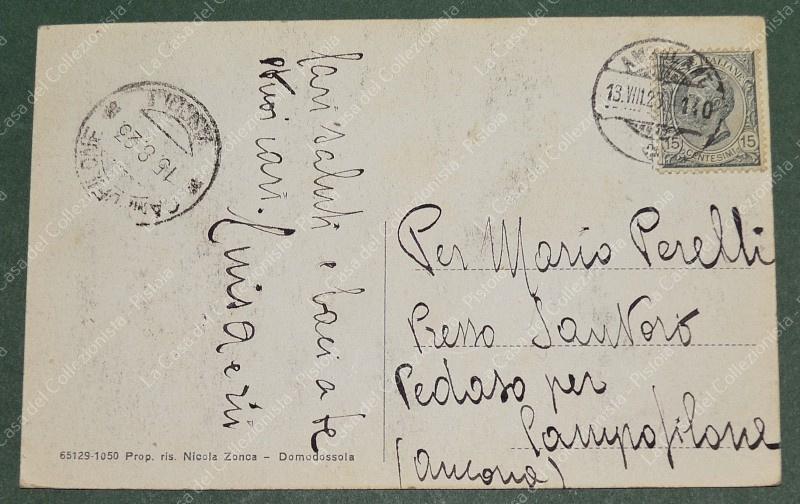 Cari saluti e baci a te
Per Mario Perelli
Presso Santoro
Pedaso per
Campofilone
(Ancona)
13.VIII.23
140
ITALIANE
15 CENTESIMI 15
CAMPOFILONE
15.8.23
65129-1050 Prop. ris. Nicola Zonca - Domodossola
La Casa del Collezionista - Pistoia